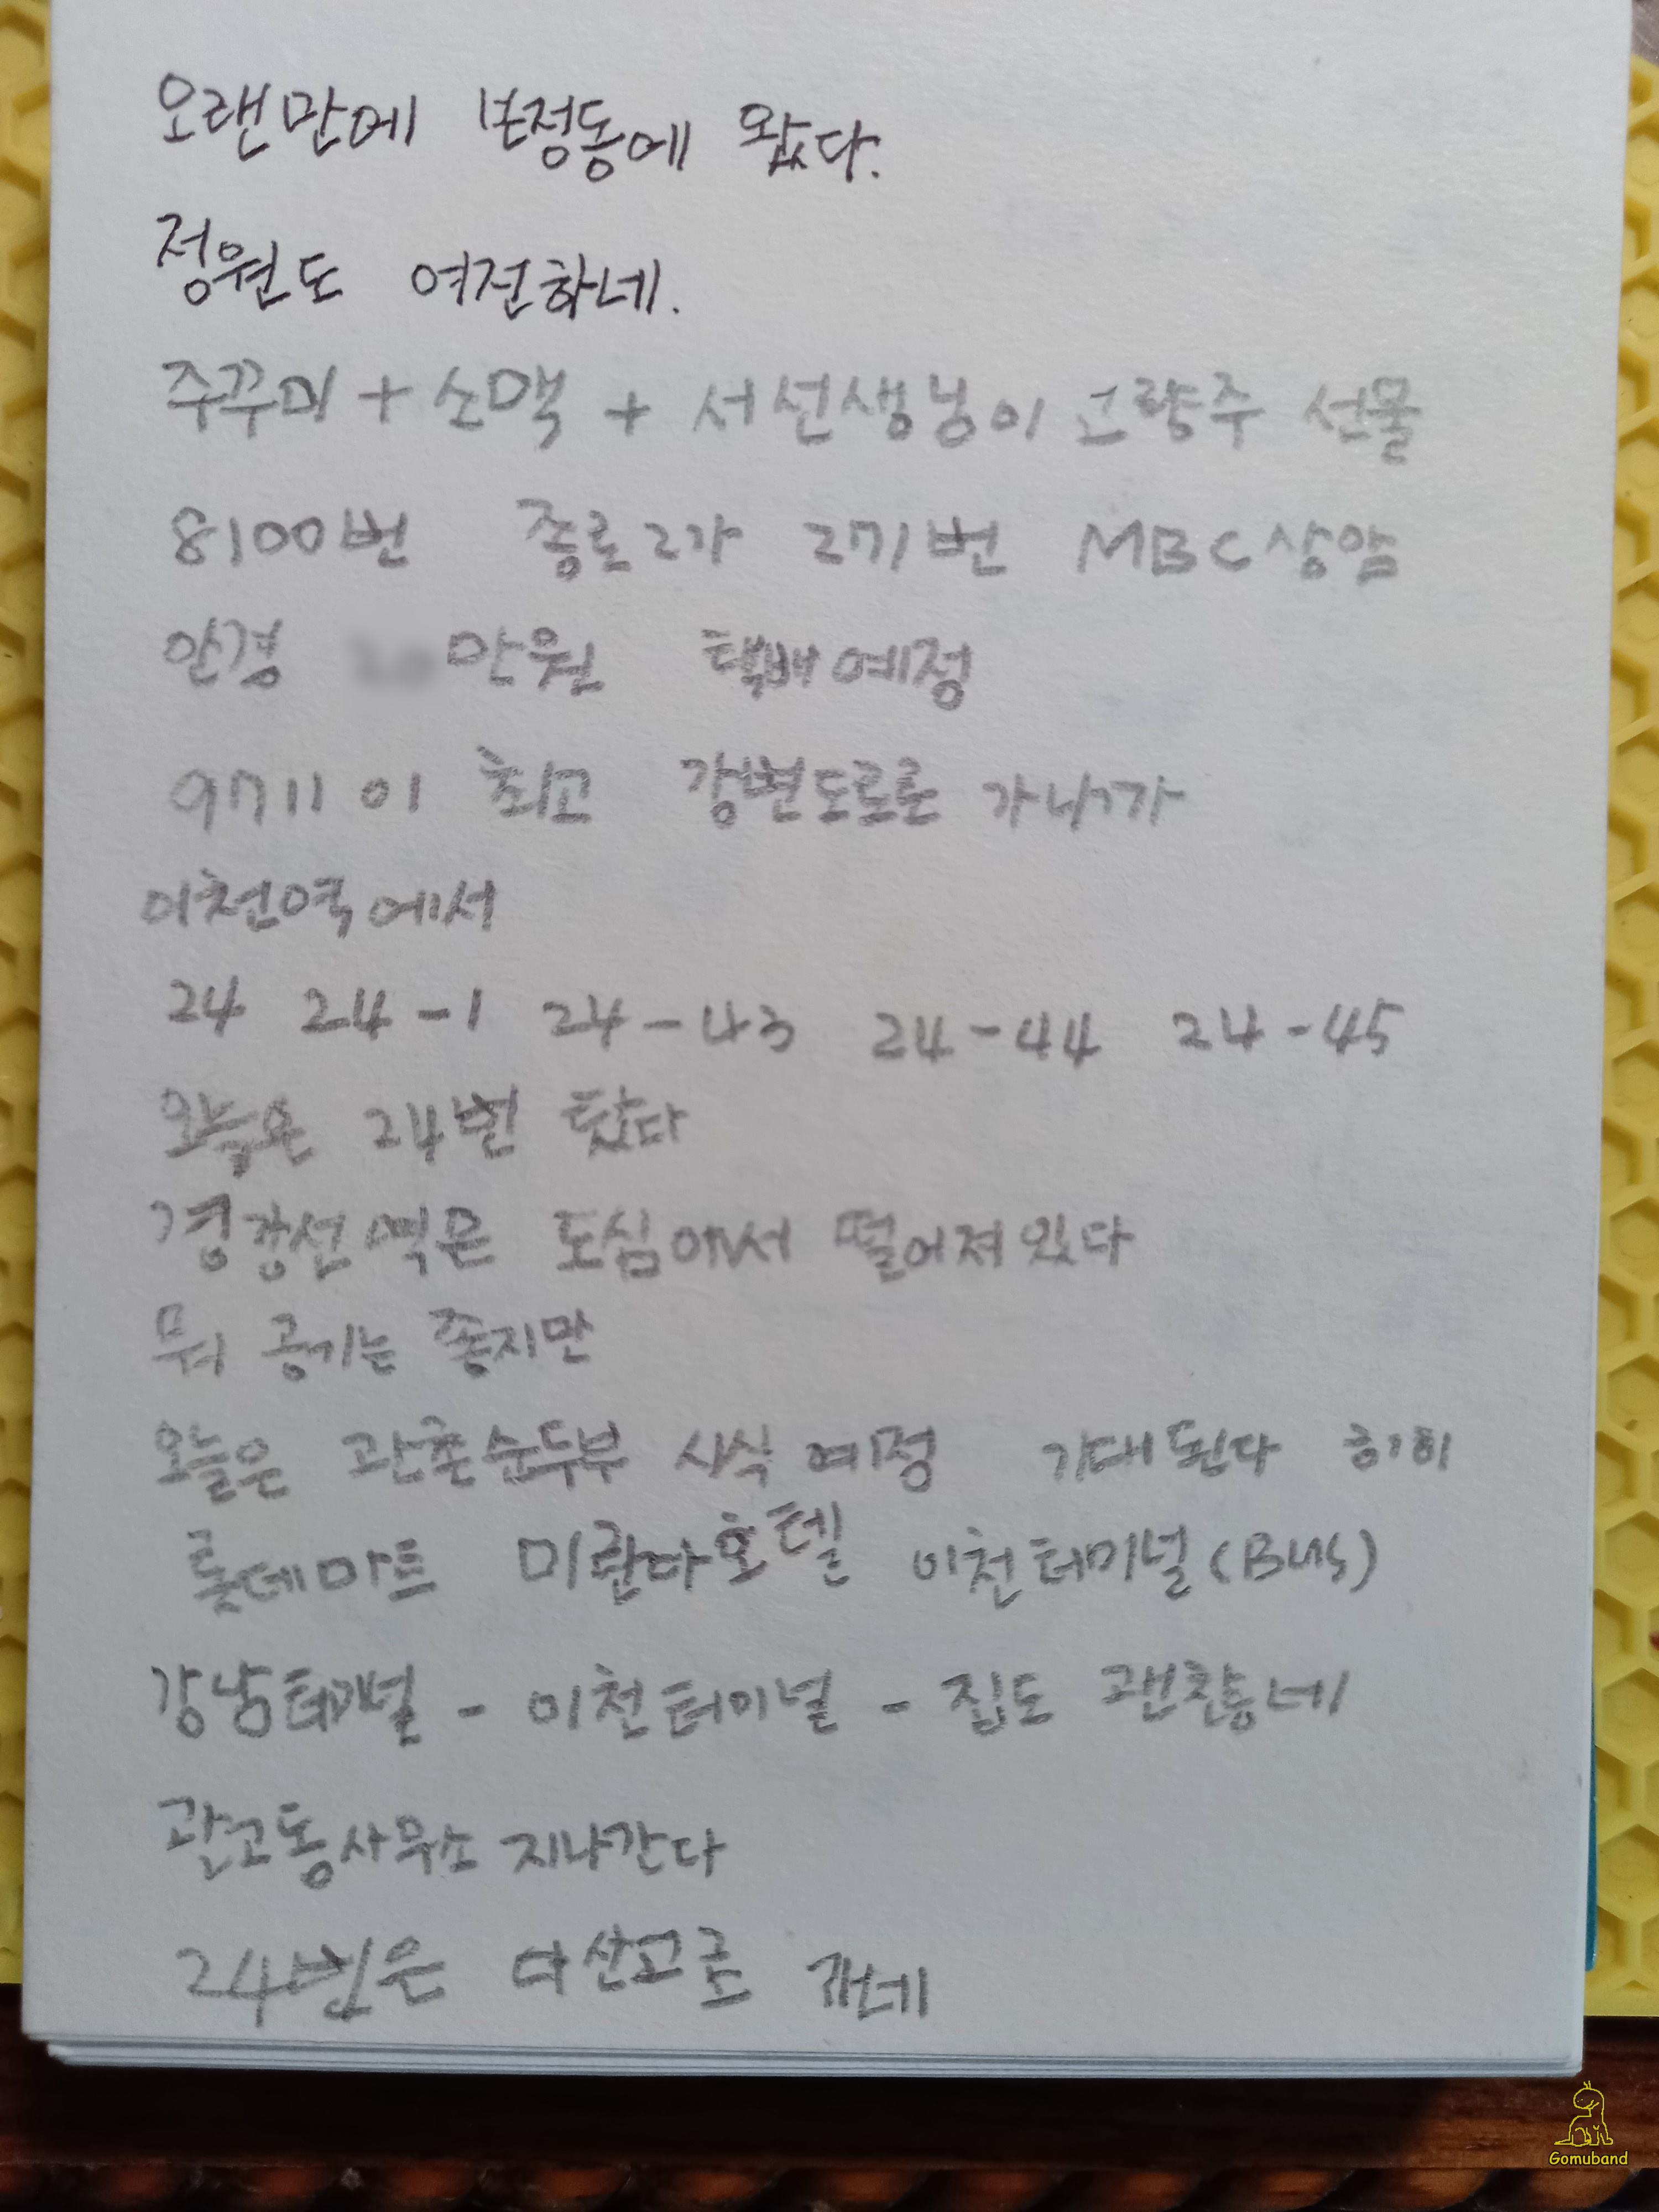 오랜만에 보정동에 왔다.
정원도 여전하네.
주꾸미 + 소맥 + 서선생님이 고량주 선물
8100번 종로2가 271번 MBC상암
안경 만원 택배예정
9711이 최고 강변도로로 가니까
이천역에서
24 24-1 24-43 24-44 24-45
오늘은 24번 탔다
경강선역은 도심에서 떨어져있다
뭐 공기는 좋지만
오늘은 관촌순두부 시식예정 기대된다 히히
롯데마트 미란다호텔 이천터미널(Bus)
강남터미널 - 이천터미널 - 집도 괜찮네
관고동사무소 지나간다
24번은 다산고로 가네
Gomuband